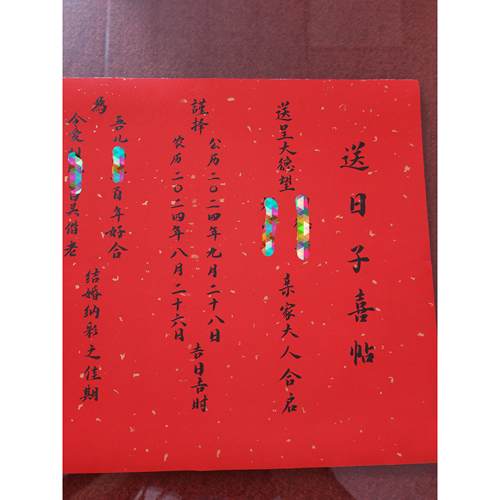 送日子喜帖
送呈大德望
亲家大人合启
谨择
公历二〇二四年九月二十八日
农历二〇二四年八月二十六日
吉日吉时
为
吾儿 百年好合
令爱 白头偕老
结婚纳彩之佳期